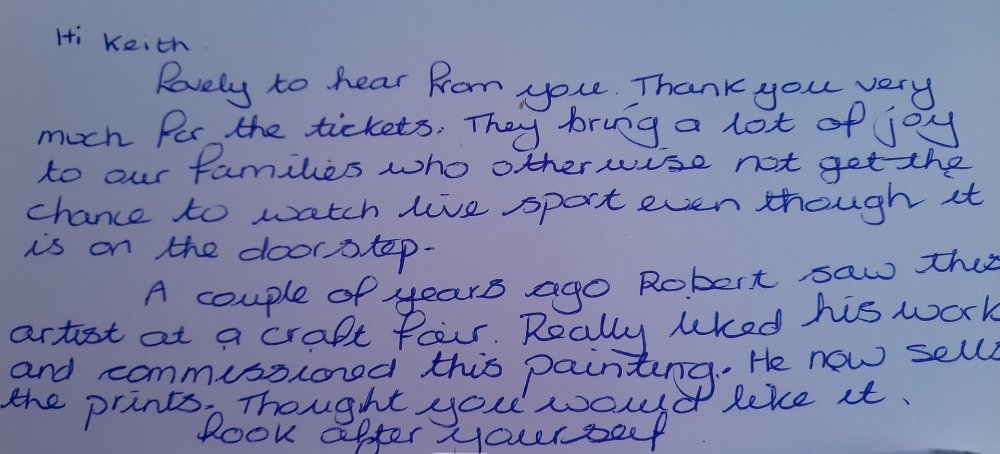 Hi Keith
Lovely to hear from you. Thank you very
much for the tickets. They bring a lot of joy
to our families who otherwise not get the
chance to watch live sport even though it
is on the doorstep.
A couple of years ago Robert saw this
artist at a craft fair. Really liked his work
and commissioned this painting. He now sells
the prints. Thought you would like it.
Look after yourself